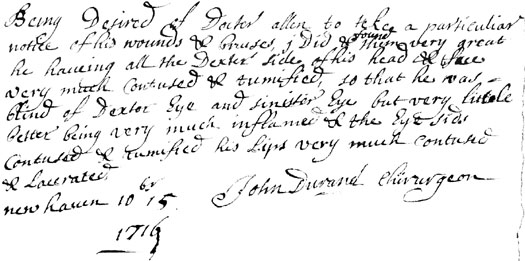 Being Desired of Docter allen to take a particuliar
notice of his wounds & bruses, J Did & found them very great
he haveing all the Dexter side of his head & face
very much Contused & tumified, so that he was
blind of Dexter Eye and sinister Eye but very little
better being very much inflamed & the Eye lids
Contused & tumified his Lips very much Contused
& Lacerated
new haven 10br 15 John Durand Chirurgeon
1716